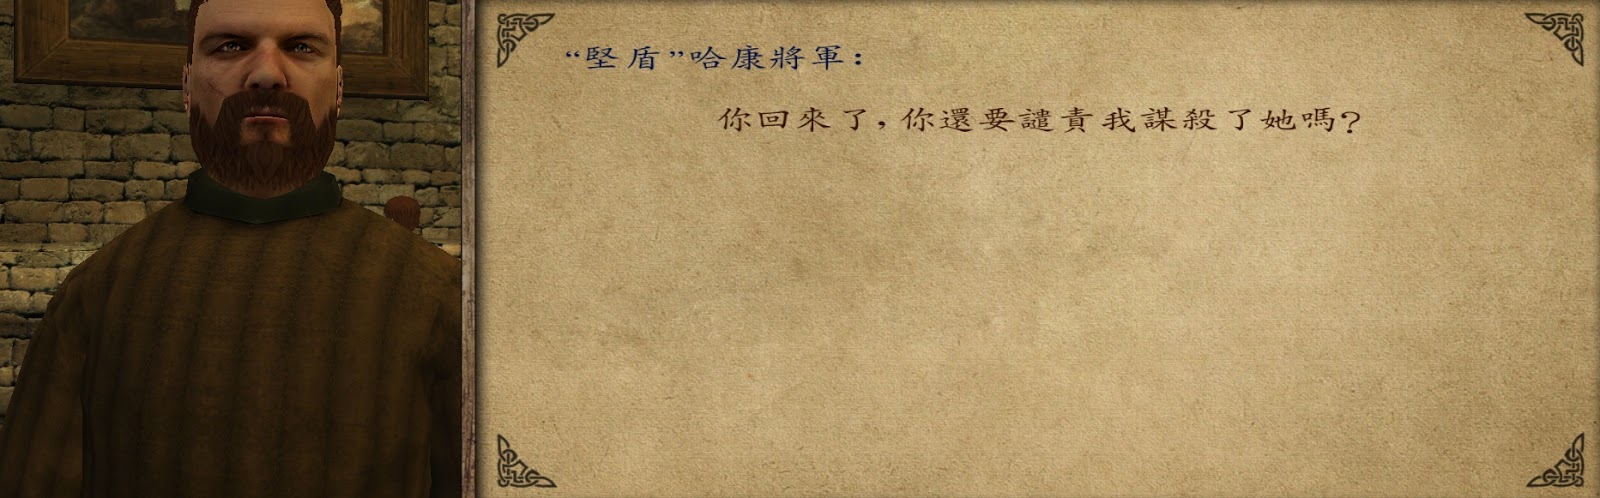 “堅盾”哈康將軍：
你回來了，你還要譴責我謀殺了她嗎？